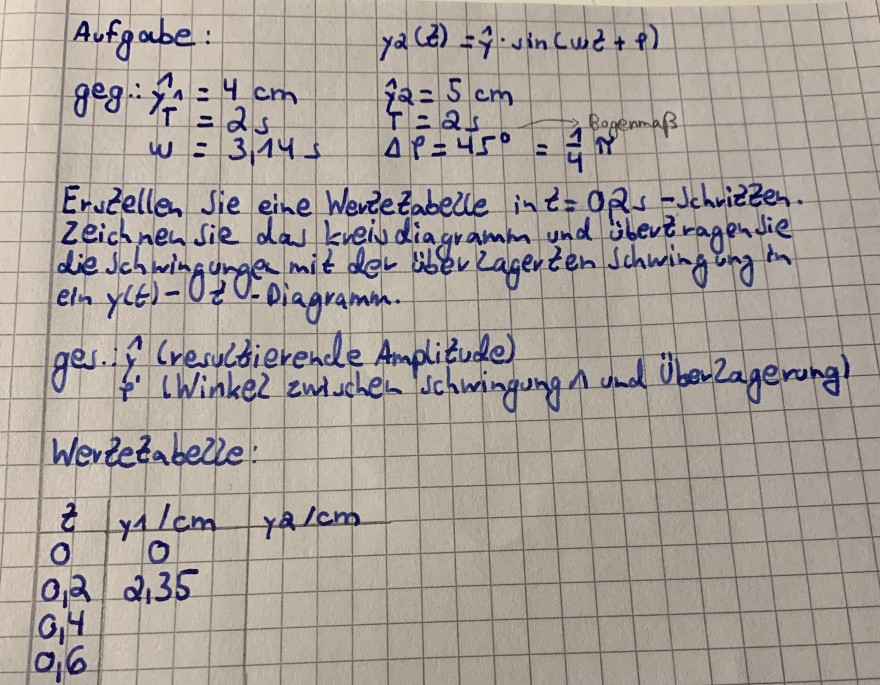 Aufgabe: y2(t) = ŷ · sin(ωt + φ)
geg.: ŷ1 = 4 cm ŷ2 = 5 cm
T = 2s T = 2s → Bogenmaß
ω = 3,14 s Δφ = 45° = 1/4 π
Erstellen Sie eine Wertetabelle in t = 0,2s - Schritten.
Zeichnen Sie das Kreisdiagramm und übertragen Sie
die Schwingungen mit der überlagerten Schwingung in
ein y(t) - t - Diagramm.
ges.: ŷ (resultierende Amplitude)
φ' (Winkel zwischen Schwingung 1 und Überlagerung)
Wertetabelle:
t y1/cm y2/cm
0 0
0,2 2,35
0,4
0,6